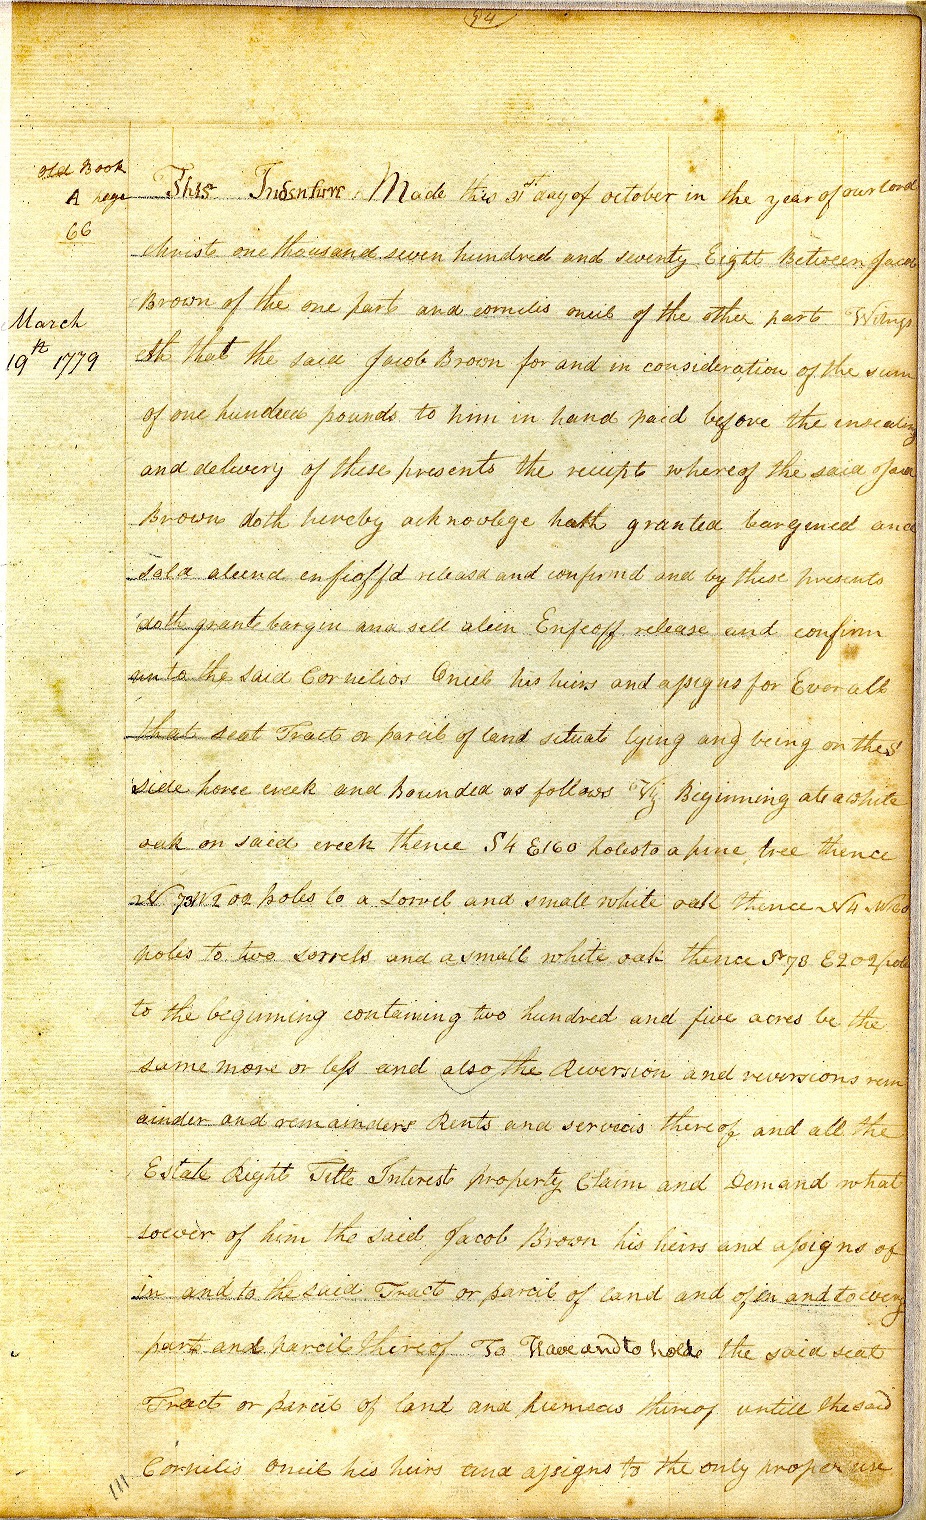 94
old Book
A page
66
March
19th 1779
This Indenture Made this 31st day of october in the year of our lord
christ one thousand seven hundred and seventy Eight Between Jacob
Brown of the one part and cornilis oneil of the other part Witnes
eth that the said Jacob Brown for and in consideration of the sum
of one hundred pounds to him in hand paid before the insealing
and delivery of these presents the receipt whereof the said Jacob
Brown doth hereby acknowlege hath granted bargined and
sold aleend enfeoff'd releasd and confirmd and by these presents
doth grant bargin and sell aleen Enfeoff release and confirm
unto the said Cornelios Oneil his heirs and assigns for Ever all
that seat Tract or parcil of land situate lying and being on the S
side horce creek and Bounded as follows Viz Beginning at a white
oak on said creek thence S4 E160 poles to a pine tree thence
N 73W 202 poles to a sorrel and small white oak thence N4 W160
poles to two sorrels and a small white oak thence S 78 E202 poles
to the beginning containing two hundred and five acres be the
same more or less and also the Reversion and reversions rem
ainder and remainders Rents and servicis thereof and all the
Estate Right Title Interest property Claim and Demand what
soever of him the said Jacob Brown his heirs and assigns of
in and to the said Tract or parcil of land and of in and to every
part and parcil thereof To Have and to hold the said seat
Tract or parcil of land and premicis thereof untill the said
Cornilis Oneil his heirs and assigns to the only proper use
111